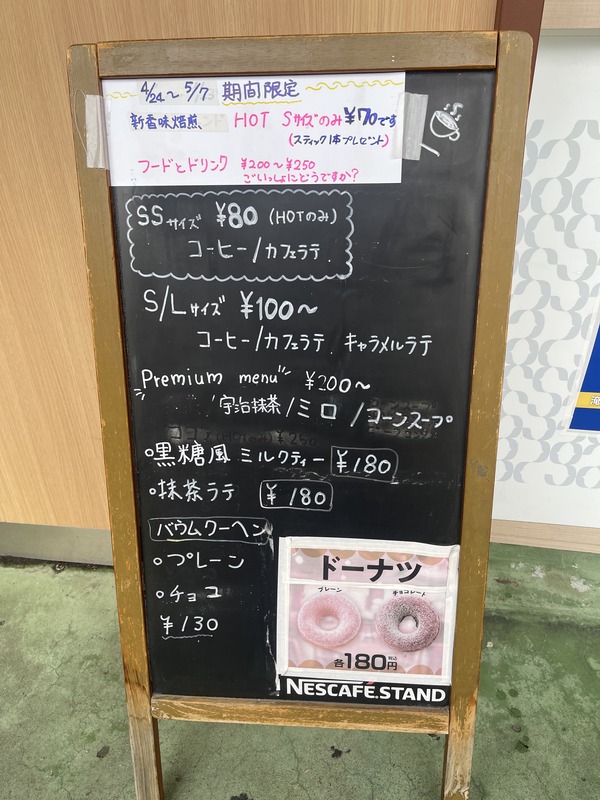 4/24～5/7 期間限定
新香味焙煎、 HOT Sサイズのみ ¥70です
(スティック1本プレゼント)
フードとドリンク ¥200～¥250
ごいっしょにどうですか?
SSサイズ ¥80 (HOTのみ)
コーヒー/カフェラテ
S/Lサイズ ¥100～
コーヒー/カフェラテ キャラメルラテ
Premium menu ¥200～
宇治抹茶/ミロ/コーンスープ
○黒糖風ミルクティー ¥180
○抹茶ラテ ¥180
バウムクーヘン
○プレーン
○チョコ
¥130
ドーナツ
プレーン チョコレート
各180円 税込
NESCAFÉ.STAND